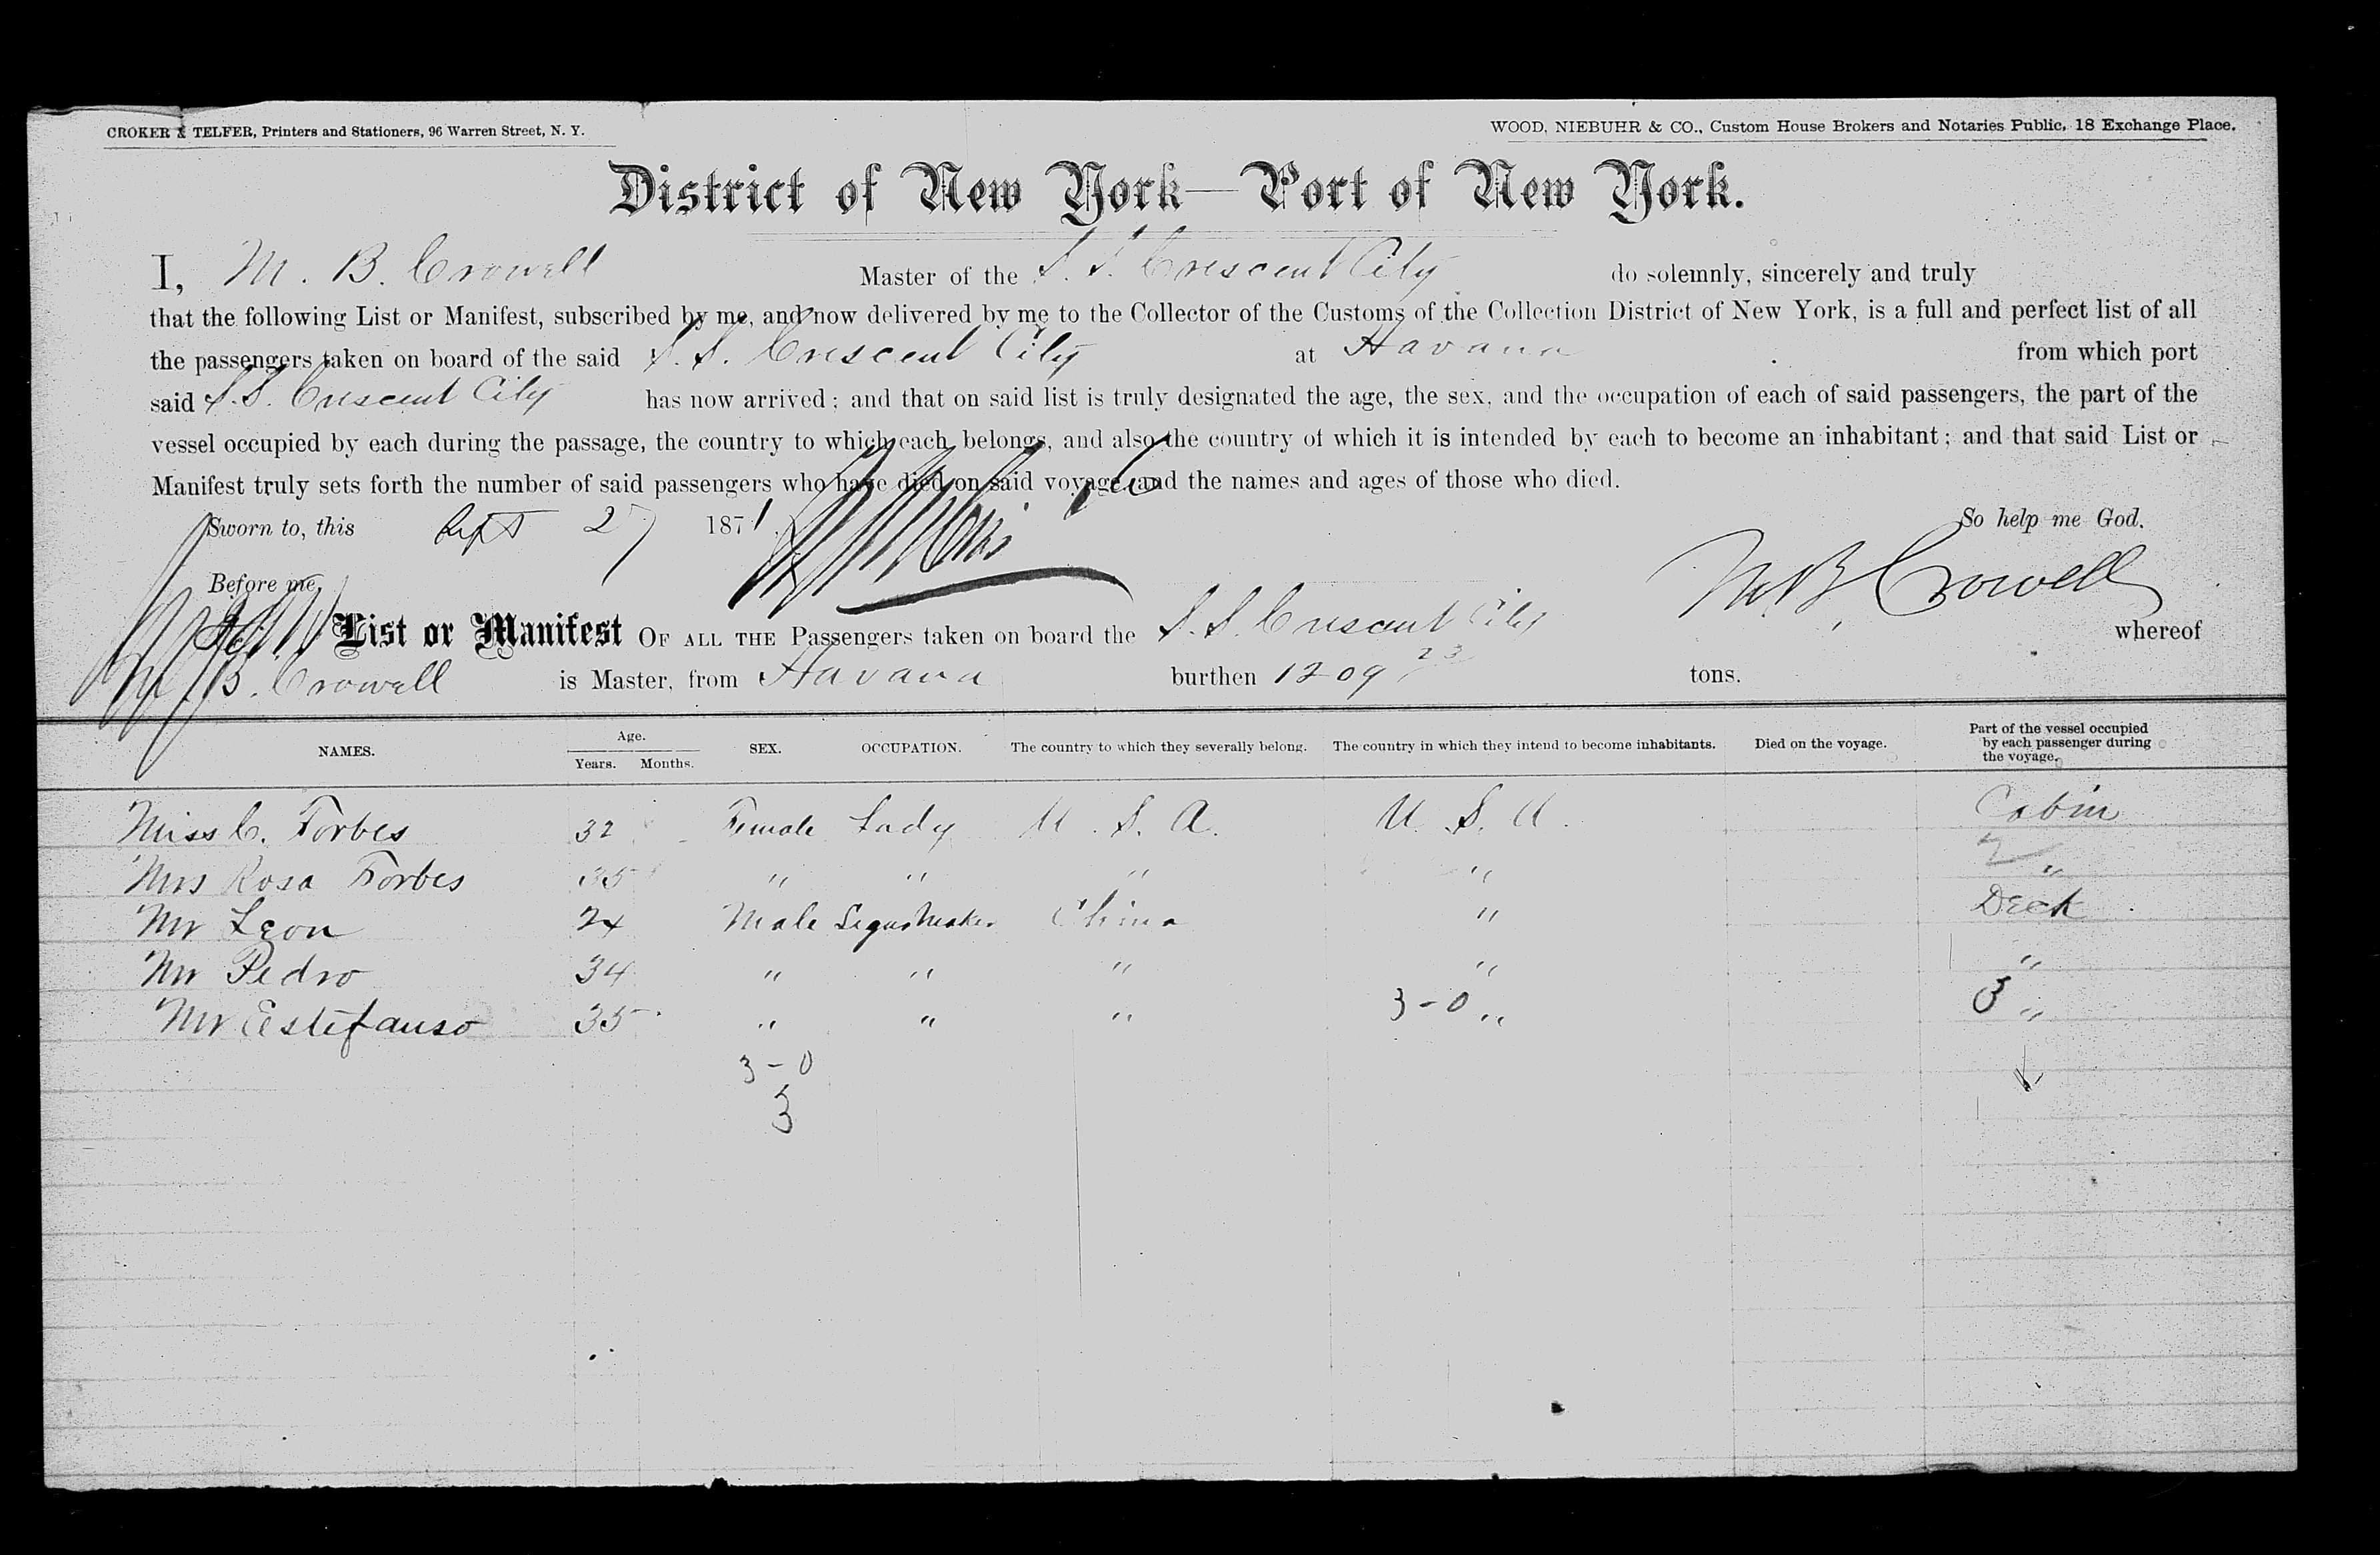 CROKER & TELFER, Printers and Stationers, 96 Warren Street, N. Y.
WOOD, NIEBUHR & CO., Custom House Brokers and Notaries Public, 18 Exchange Place.
District of New York—Port of New York.
I, M. B. Crowell Master of the S. S. Crescent City do solemnly, sincerely and truly
that the following List or Manifest, subscribed by me, and now delivered by me to the Collector of the Customs of the Collection District of New York, is a full and perfect list of all
the passengers taken on board of the said S. S. Crescent City at Havana from which port
said S. S. Crescent City has now arrived; and that on said list is truly designated the age, the sex, and the occupation of each of said passengers, the part of the
vessel occupied by each during the passage, the country to which each belongs, and also the country of which it is intended by each to become an inhabitant; and that said List or
Manifest truly sets forth the number of said passengers who have died on said voyage, and the names and ages of those who died.
Sworn to, this Sept 27 1871 So help me God.
Before me, M B Crowell
List or Manifest OF ALL THE Passengers taken on board the S. S. Crescent City whereof
M. B. Crowell is Master, from Havana burthen 1209 23 tons.
NAMES. Age. Years. Months. SEX. OCCUPATION. The country to which they severally belong. The country in which they intend to become inhabitants. Died on the voyage. Part of the vessel occupied by each passenger during the voyage.
Miss C. Forbes 32 Female Lady U. S. A. U. S. A. Cabin
2
Mrs Rosa Forbes 35 " " " " "
Mr Leon 24 Male Segar Maker China " Deck
Mr Pedro 34 " " " " "
Mr Estefanso 35 " " " 3-0 " 3 "
3-0
3